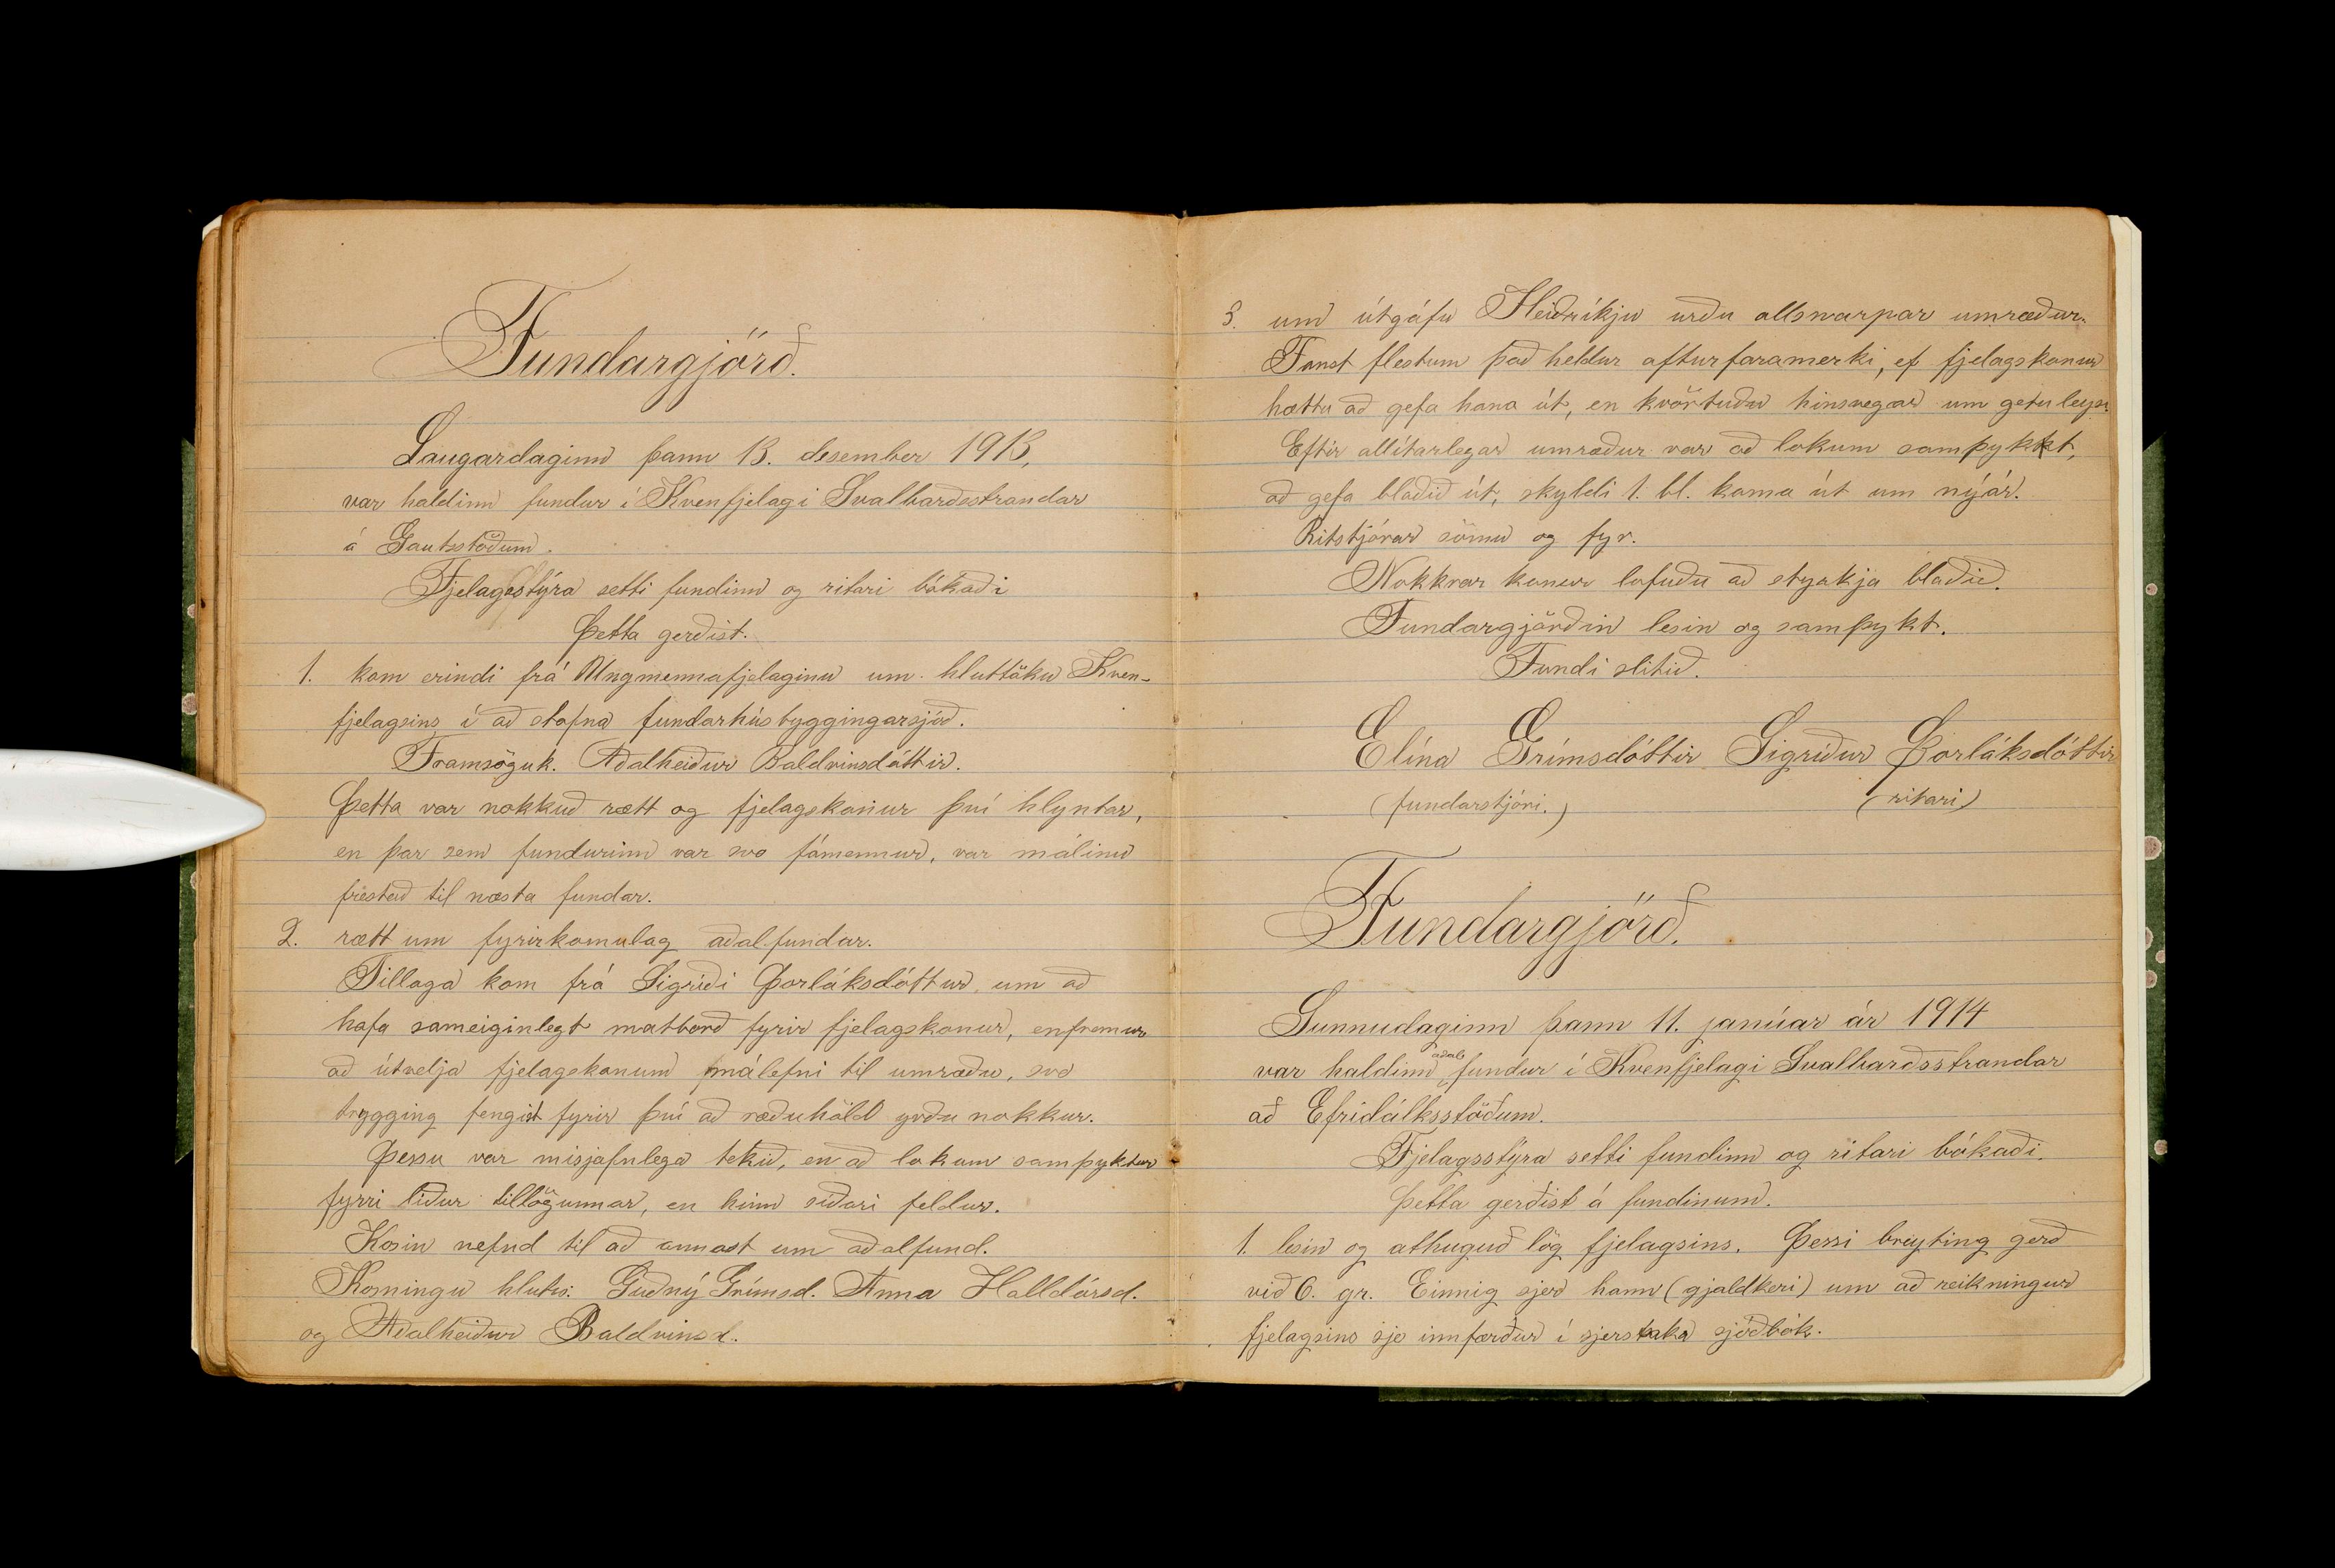 Fundargjörð.
Laugardaginn þann 13. desember 1913,
var haldinn fundur í Kvenfjelagi Svalbarðsstrandar
á Gautsstöðum.
Fjelagsstýra setti fundinn og ritari bókaði
Þetta gerðist.
1. kom erindi frá Ungmennafjelaginu um hluttöku Kven-
fjelagsins í að stofna fundarhúsbyggingarsjóð.
Framsöguk. Aðalheiður Baldvinsdóttir.
Þetta var nokkuð rætt og fjelagskonur því hlyntar,
en þar sem fundurinn var svo fámennur, var málinu
frestað til næsta fundar.
2. rætt um fyrirkomulag aðalfundar.
Tillaga kom frá Sigríði Þorláksdóttur, um að
hafa sameiginlegt matborð fyrir fjelagskonur, enfremur
að útvelja fjelagskonum málefni til umræðu, svo
trygging fengist fyrir því að ræðuhöld yrðu nokkur.
Þessu var misjafnlega tekið, en að lokum samþyktur
fyrri liður tillögunnar, en hinn síðari feldur.
Kosin nefnd til að annast um aðalfund.
Kosningu hlutu: Guðný Grímsd. Anna Halldórsd.
og Aðalheiður Baldvinsd.
3. um útgáfu Heiðríkju urðu allsnarpar umræður.
Fanst flestum það heldur afturfaramerki, ef fjelagskonur
hættu að gefa hana út, en kvörtuðu hinsvegar um getuleysi.
Eftir allítarlegar umræður var að lokum samþykkt,
að gefa blaðið út, skyldi 1. bl. koma út um nýár.
Ritstjórar sömu og fyr.
Nokkrar konur lofuðu að styrkja blaðið.
Fundargjörðin lesin og samþykt.
Fundi slitið.
Elína Grímsdóttir Sigríður Þorláksdóttir
(fundarstjóri.) (ritari)
Fundargjörð.
Sunnudaginn þann 11. janúar ár 1914
var haldinn aðalfundur í Kvenfjelagi Svalbarðsstrandar
að Efridálksstöðum.
Fjelagsstýra setti fundinn og ritari bókaði.
Þetta gerðist á fundinum.
1. lesin og athuguð lög fjelagsins. Þessi breyting gerð
við 6. gr. Einnig sjer hann (gjaldkeri) um að reikningur
fjelagsins sje innfærður í sjerstaka sjóðbók.